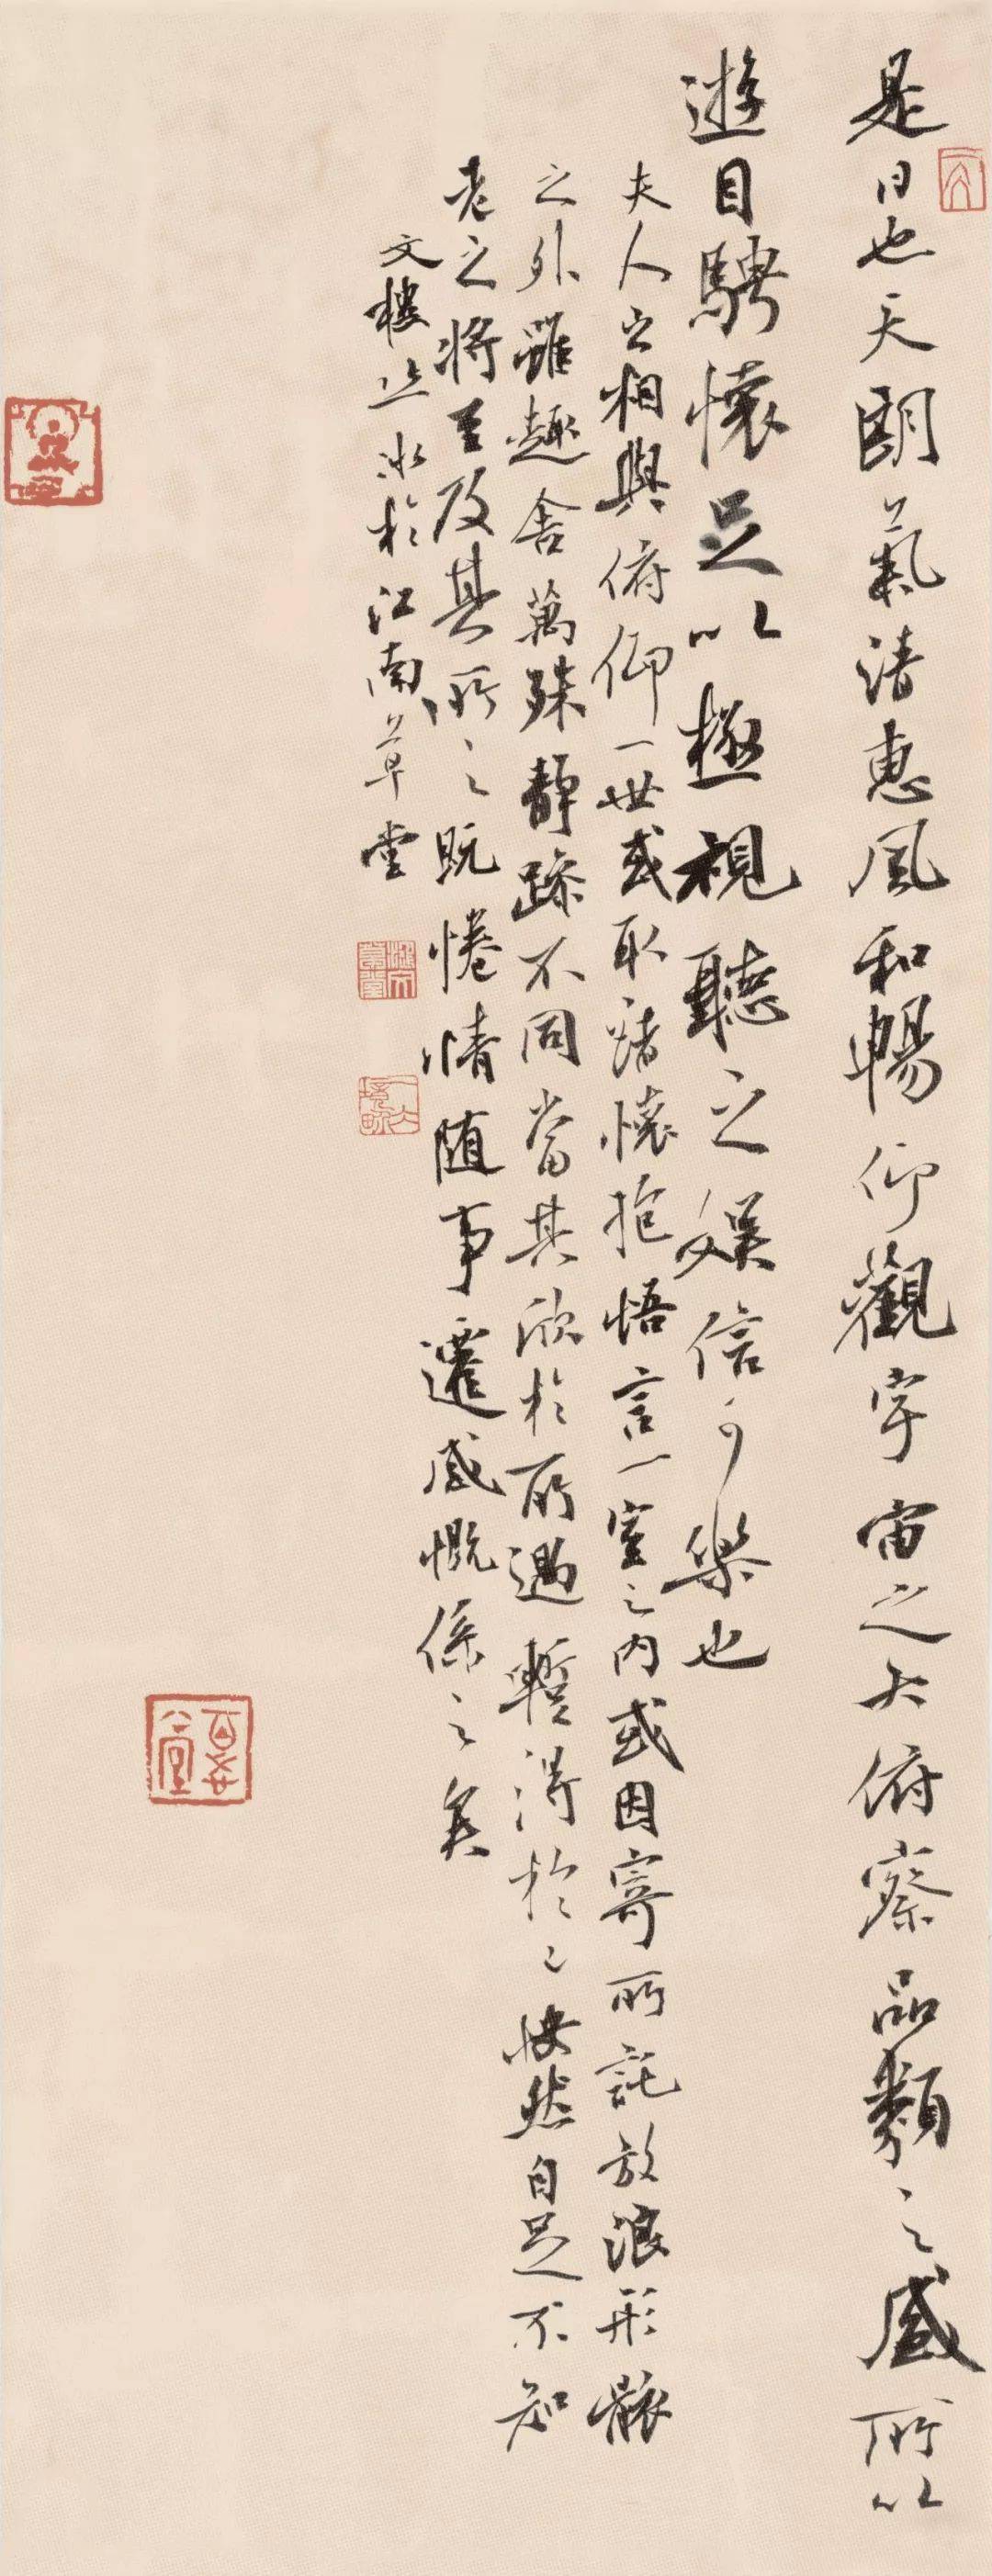 是日也天朗氣清惠風和暢仰觀宇宙之大俯察品類之盛所以
遊目騁懷足以極視聽之娛信可樂也
夫人之相與俯仰一世或取諸懷抱悟言一室之内或因寄所託放浪形骸
之外雖趣舍萬殊靜躁不同當其欣於所遇暫得於己快然自足不知
老之將至及其所之既惓情随事遷感慨係之矣
文樓止水於江南草堂